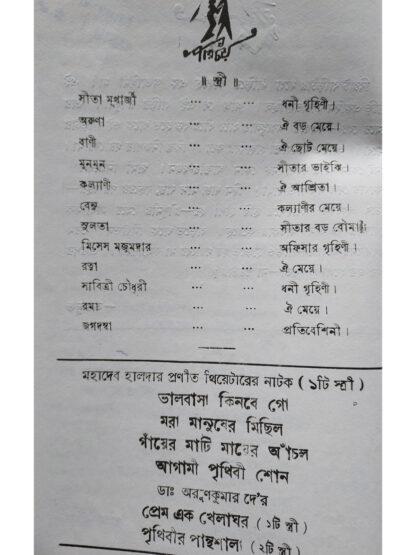 পরিচয়
॥ স্ত্রী ॥
সীতা মুখার্জী ... ... ধনী গৃহিণী।
অরুণা ... ... ঐ বড় মেয়ে।
বাণী ... ... ঐ ছোট মেয়ে।
মুনমুন ... ... সীতার ভাইঝি।
কল্যাণী ... ... ঐ আশ্রিতা।
বেনু ... ... কল্যাণীর মেয়ে।
সুলতা ... ... সীতার বড় বৌমা।
মিসেস মজুমদার ... ... অফিসার গৃহিণী।
রত্না ... ... ঐ মেয়ে।
সাবিত্রী চৌধুরী ... ... ধনী গৃহিণী।
রমা ... ... ঐ মেয়ে।
জগদম্বা ... ... প্রতিবেশিনী।
মহাদেব হালদার প্রণীত থিয়েটারের নাটক ( ১টি স্ত্রী )
ভালবাসা কিনবে গো
মরা মানুষের মিছিল
গাঁয়ের মাটি মায়ের আঁচল
আগামী পৃথিবী শোন
ডাঃ অরুণকুমার দে'র
প্রেম এক খেলাঘর ( ১টি স্ত্রী )
পৃথিবীর পান্থশালা ( ২টি স্ত্রী )